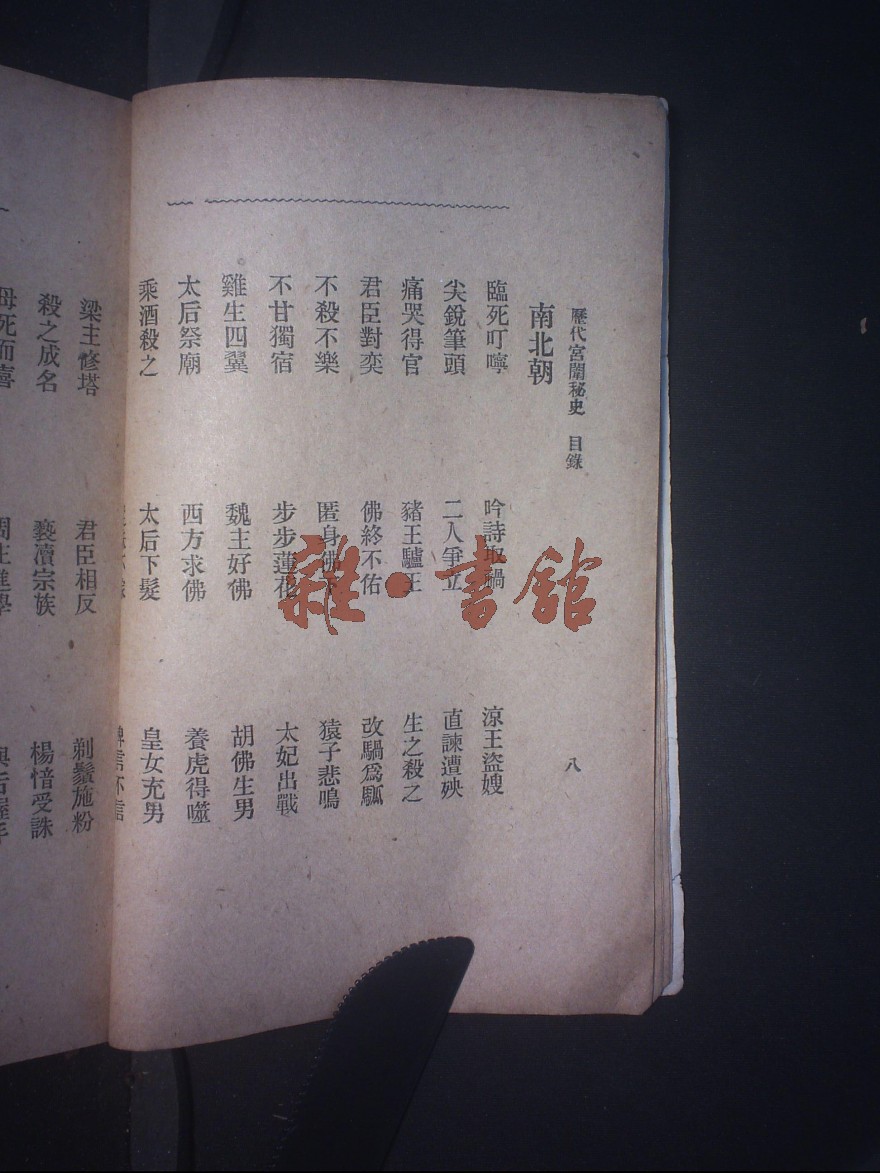 歷代宮闈秘史 目錄 八
南北朝
臨死叮嚀 吟詩取禍 涼王盜嫂
尖銳筆頭 二人爭立 直諫遭殃
痛哭得官 豬王驢王 生之殺之
君臣對奕 佛終不佑 改騧爲㼐
不殺不樂 匿身佛下 猿子悲鳴
不甘獨宿 步步蓮花 太妃出戰
雞生四翼 魏主好佛 胡佛生男
太后祭廟 西方求佛 養虎得噬
乘酒殺之 太后下髮 皇女充男
梁主修塔 君臣相反 剃鬚施粉
殺之成名 褻瀆宗族 楊愔受誅
母死而喜
雜·書館